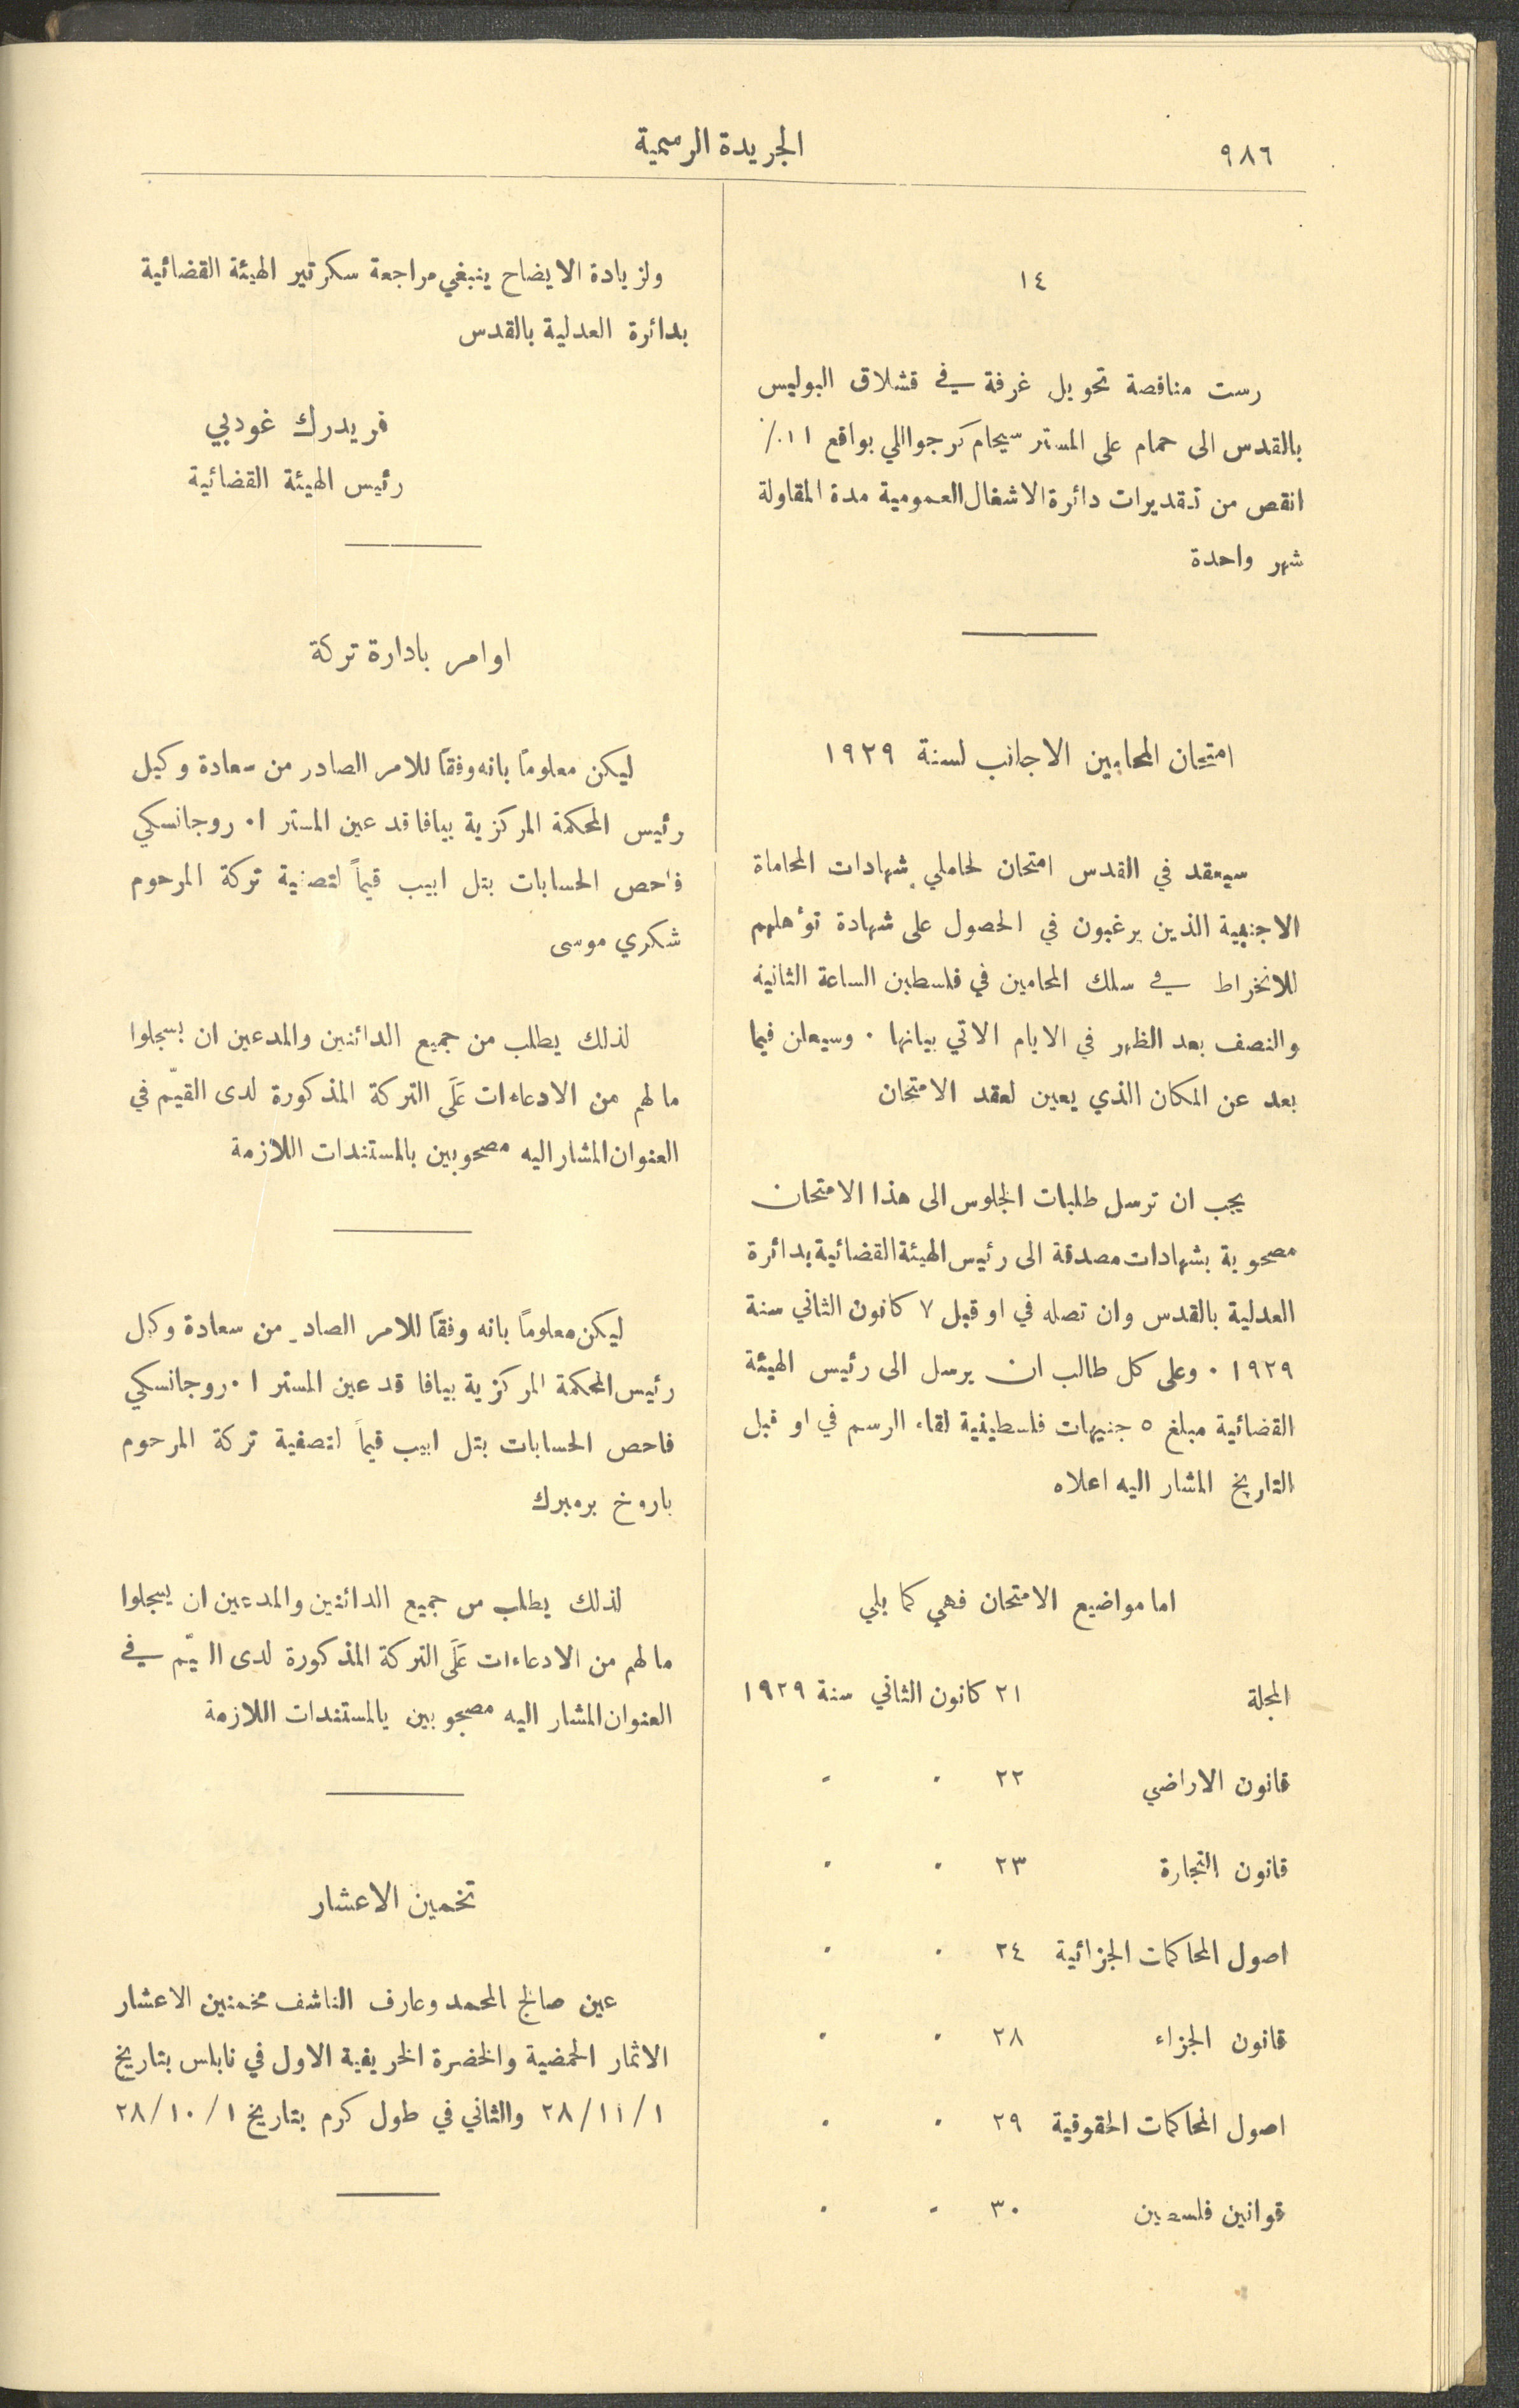 ٩٨٦
الجريدة الرسمية
١٤
رست مناقصة تحويل غرفة في قشلاق البوليس
بالقدس الى حمام على المستر سيحام كرجواللي بواقع ١١٪
انقص من تقديرات دائرة الاشغال العمومية مدة المقاولة
شهر واحدة
امتحان المحامين الاجانب لسنة ١٩٢٩
سيعقد في القدس امتحان لحاملي شهادات المحاماة
الاجنبية الذين يرغبون في الحصول على شهادة تؤهلهم
للانخراط في سلك المحامين في فلسطين الساعة الثانية
والنصف بعد الظهر في الايام الاتي بيانها . وسيعلن فيما
بعد عن المكان الذي يعين لعقد الامتحان
يجب ان ترسل طلبات الجلوس الى هذا الامتحان
مصحوبة بشهادات مصدقة الى رئيس الهيئة القضائية بدائرة
العدلية بالقدس وان تصله في او قبل ٧ كانون الثاني سنة
١٩٢٩ . وعلى كل طالب ان يرسل الى رئيس الهيئة
القضائية مبلغ ٥ جنيهات فلسطينية لقاء الرسم في او قبل
التاريخ المشار اليه اعلاه
اما مواضيع الامتحان فهي كما يلي
المجلة ٢١ كانون الثاني سنة ١٩٢٩
قانون الاراضي ٢٢ " "
قانون التجارة ٢٣ " "
اصول المحاكمات الجزائية ٢٤ " "
قانون الجزاء ٢٨ " "
اصول المحاكمات الحقوقية ٢٩ " "
قوانين فلسطين ٣٠ " "
ولزيادة الايضاح ينبغي مراجعة سكرتير الهيئة القضائية
بدائرة العدلية بالقدس
فريدرك غودبي
رئيس الهيئة القضائية
اوامر بادارة تركة
ليكن معلوماً بانه وفقاً للامر الصادر من سعادة وكيل
رئيس المحكمة المركزية بيافا قد عين المستر ا. روجانسكي
فاحص الحسابات بتل ابيب قيماً لتصفية تركة المرحوم
شكري موسى
لذلك يطلب من جميع الدائنين والمدعين ان يسجلوا
ما لهم من الادعاءات عَلَى التركة المذكورة لدى القيّم في
العنوان المشار اليه مصحوبين بالمستندات اللازمة
ليكن معلوماً بانه وفقاً للامر الصادر من سعادة وكيل
رئيس المحكمة المركزية بيافا قد عين المستر ا. روجانسكي
فاحص الحسابات بتل ابيب قيماً لتصفية تركة المرحوم
باروخ برمبرك
لذلك يطلب من جميع الدائنين والمدعين ان يسجلوا
ما لهم من الادعاءات عَلَى التركة المذكورة لدى القيّم في
العنوان المشار اليه مصحوبين بالمستندات اللازمة
تخمين الاعشار
عين صالح المحمد وعارف الناشف مخمنين الاعشار
الاثمار الحمضية والخضرة الخريفية الاول في نابلس بتاريخ
٢٨/١١/١ والثاني في طول كرم بتاريخ ٢٨/١٠/١